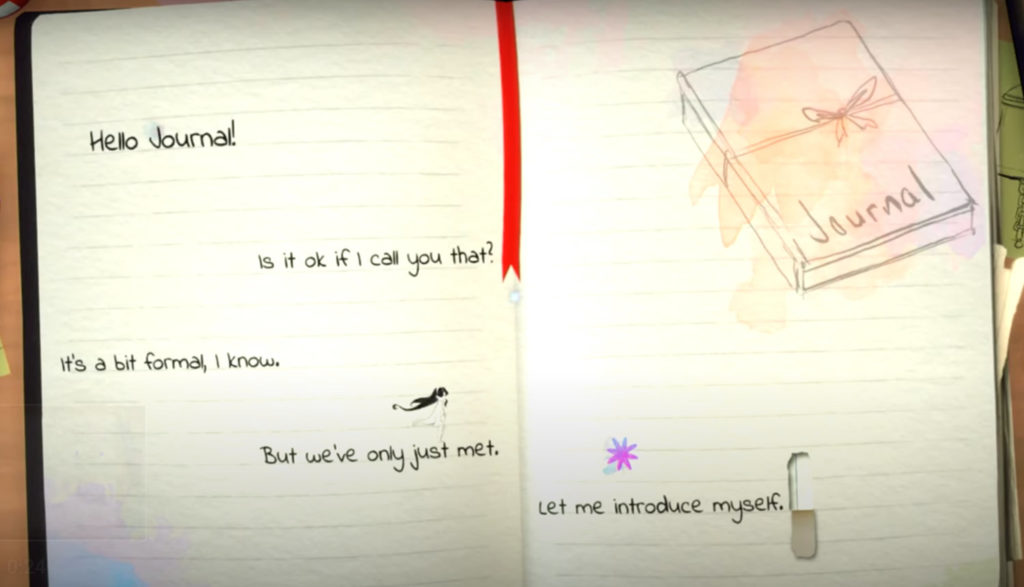 Hello Journal!
Is it ok if I call you that?
It's a bit formal, I know.
But we've only just met.
Journal
Let me introduce myself.